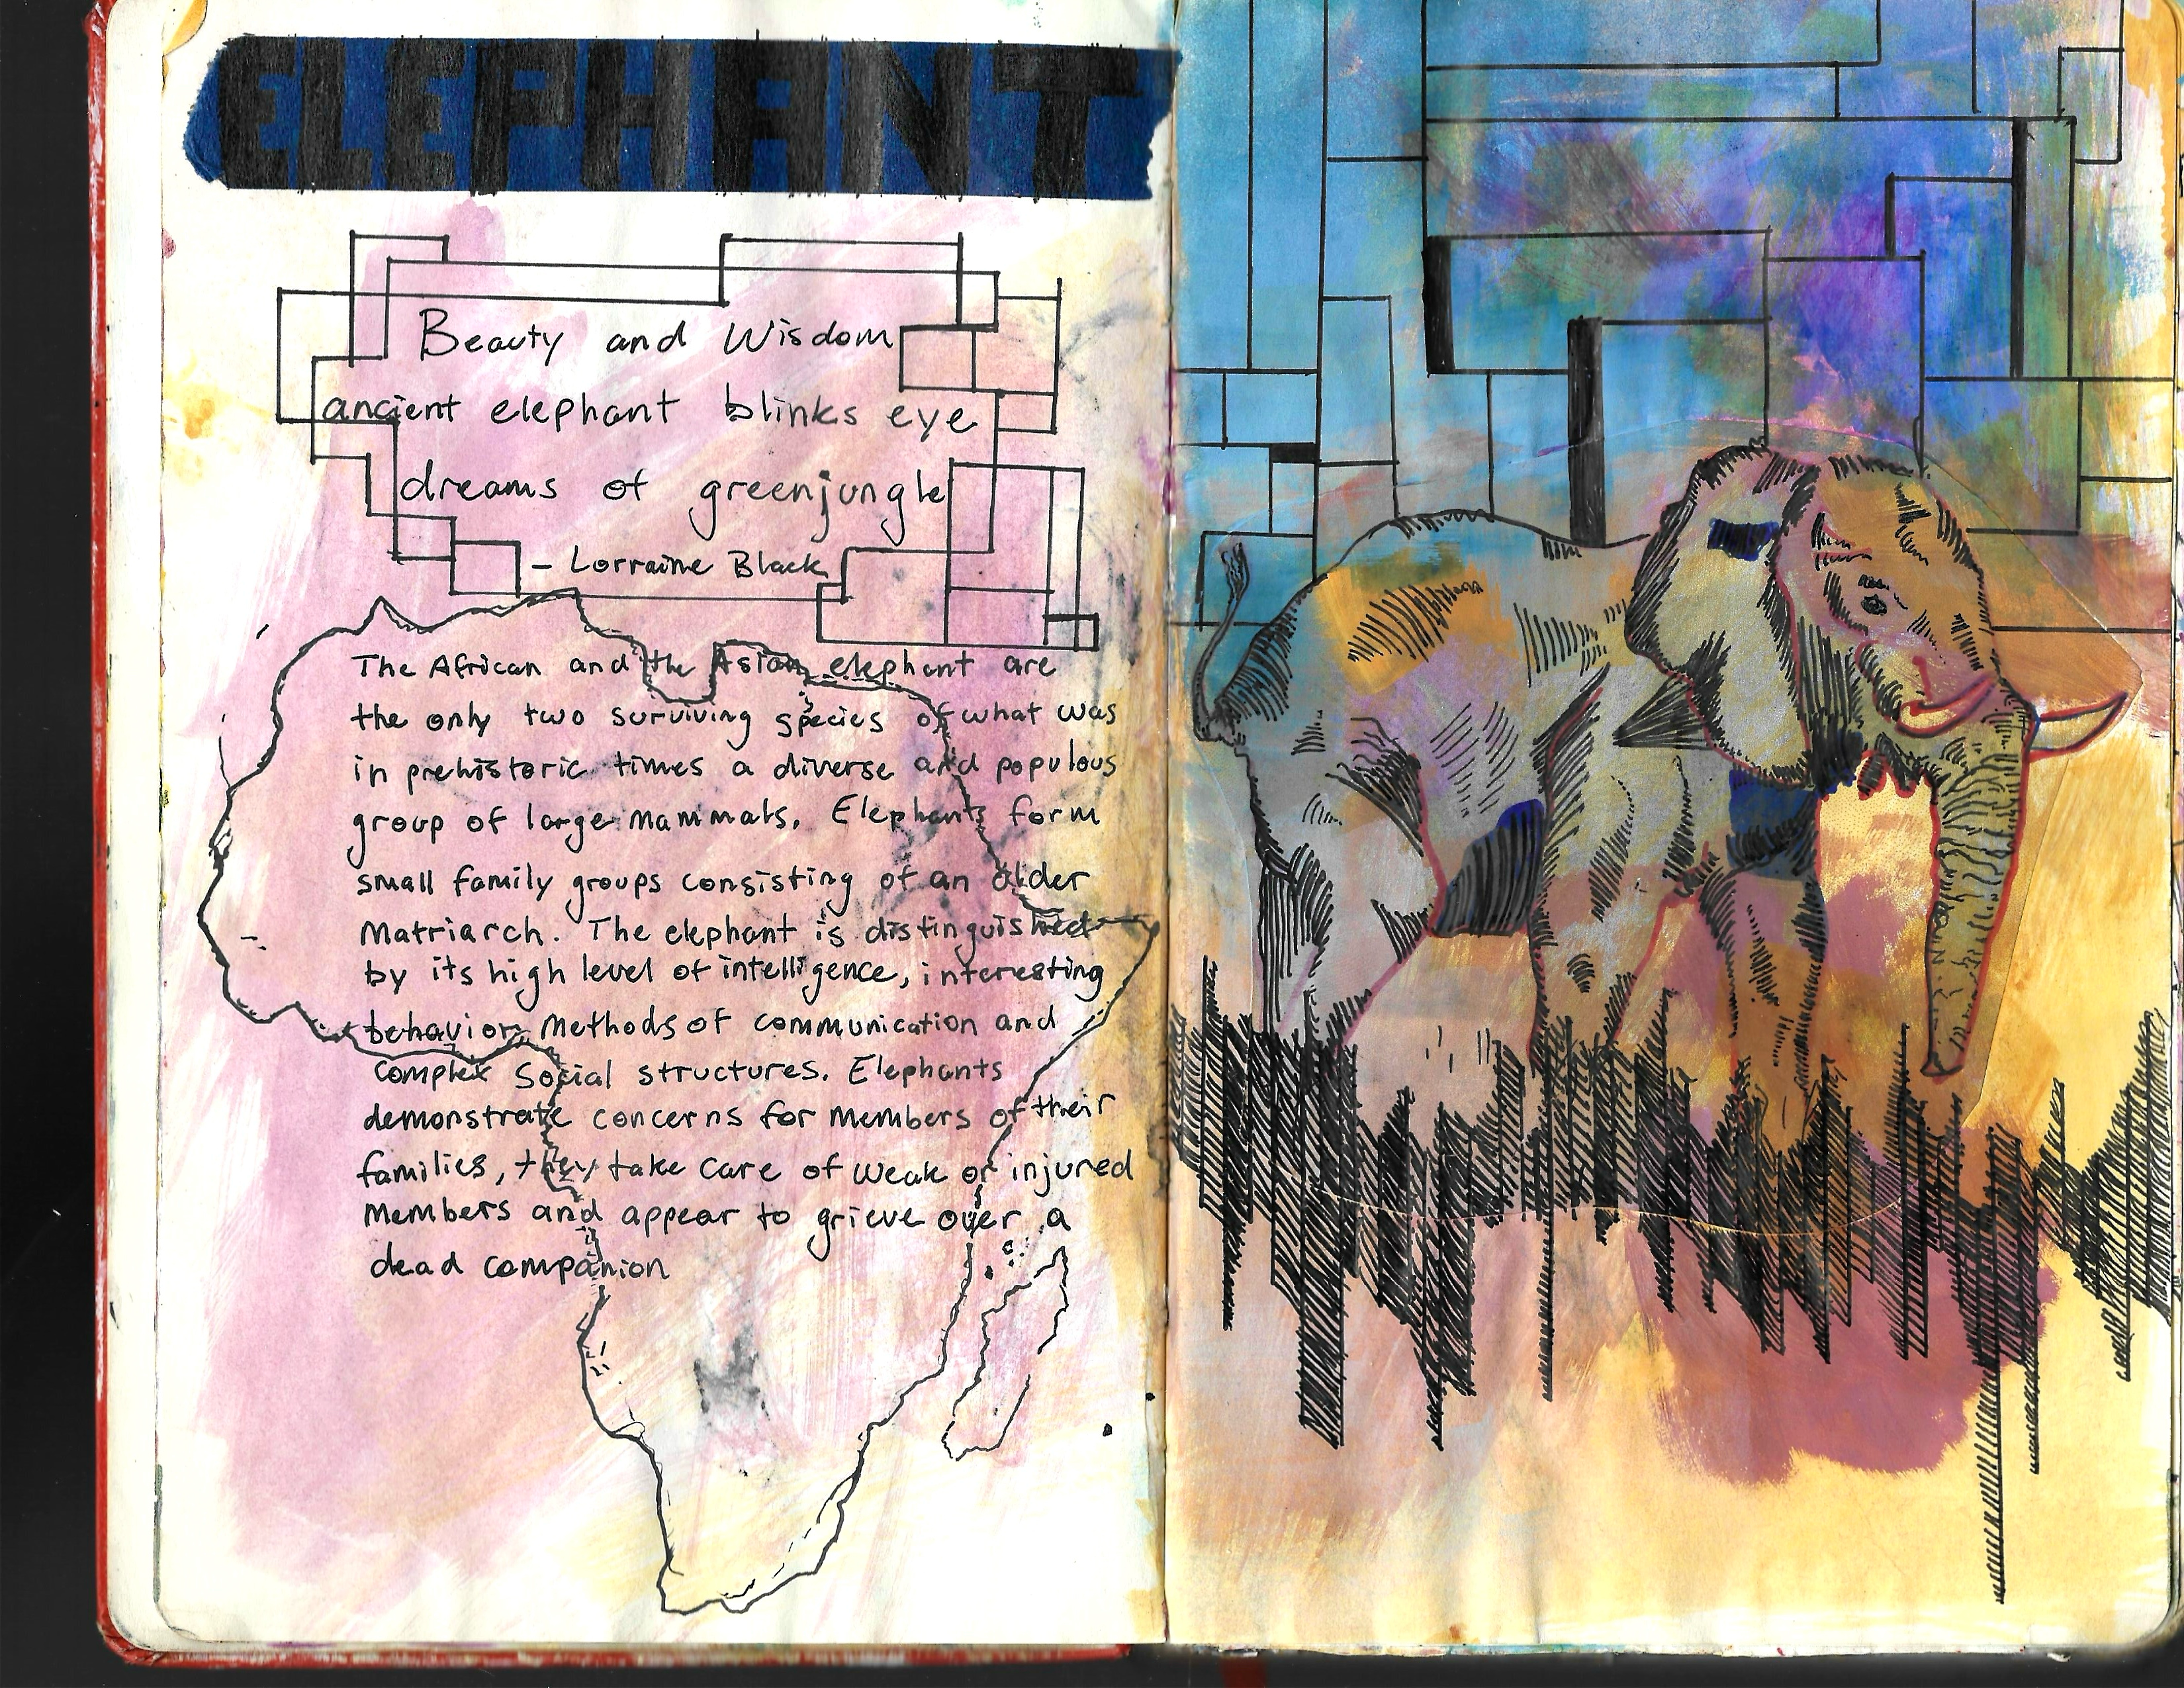 ELEPHANT
Beauty and Wisdom
ancient elephant blinks eye
dreams of greenjungle
- Lorraine Black
The African and the Asian elephant are
the only two surviving species of what was
in prehistoric times a diverse and populous
group of large mammals. Elephants form
small family groups consisting of an older
Matriarch. The elephant is distinguished
by its high level of intelligence, interesting
behavior, methods of communication and
complex social structures. Elephants
demonstrate concerns for members of their
families, they take care of weak or injured
members and appear to grieve over a
dead companion